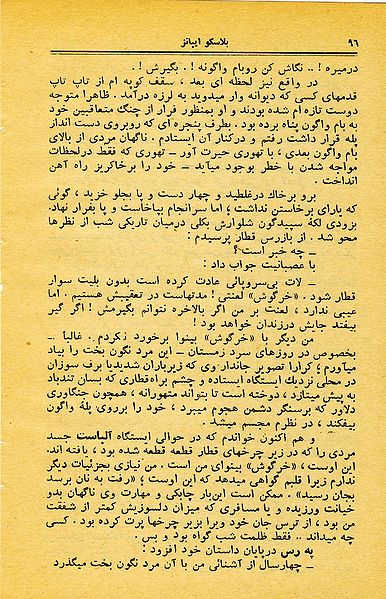 ۹۶ بلاسکو ایبانز
درمیره ! .. نگاش کن روبام واگونه !. بگیرش !.
در واقع نیز لحظه ای بعد ، ..سقف کوپه ام از تاپ تاپ
قدمهای کسی که دیوانه وار میدوید به لرزه درآمد . ظاهراً متوجه
دوست تازه ام شده بودند و او بمنظور فرار از چنگ متعاقبین خود
به بام واگون پناه برده بود . بطرف پنجره ای که روبروی دست انداز
پله قرار داشت رفتم و درکنار آن ایستادم . ناگهان مردی از بالای
بام واگون بعدی ، با تهوری حیرت آور ــ تهوری که فقط درلحظات
مواجه شدن با خطر بوجود میآید ــ خود را برخاکریز راه آهن
انداخت .
برو برخاك درغلطید و چهار دست و پا بجلو خزید ، گوئی
که یارای برخاستن نداشت ؛ اما سرانجام بپاخاست و پا بفرار نهاد.
بزودی لکۀ سپیدگون شلوارش بکلی درمیان تاریکی شب از نظرها
محو شد . از بازرس قطار پرسیدم :
ــ چه خبر است ؟
با عصبانیت جواب داد :
ــ لات بی‌سروپائی عادت کرده است بدون بلیت سوار
قطار شود . «خرگوش» لعنتی ! مدتهاست در تعقیبش هستیم . اما
عیبی ندارد ، لعنت بر من اگر بالاخره نتوانم بگیرمش ! اگر گیر
بیفتد جایش درزندان خواهد بود !
من دیگر با «خرگوش» بینوا برخورد نکردم . غالباً ــ
بخصوص در روزهای سرد زمستان ــ این مرد نگون بخت را بیاد
میآورم ؛ کراراً تصویر جاندار وی که زیرباران شدیدیا برف سوزان
در محلی نزدیك ایستگاه ایستاده و چشم براه‌قطاری که بسان تندباد
به پیش میتازد ، دوخته است تا بتواند متهورانه ، همچون جنگاوری
دلاور که برسنگر دشمن هجوم میبرد ، خود را برروی پلۀ واگون
بیفکند ، در نظرم مجسم میشد .
و هم اکنون خواندم که در حوالی ایستگاه آلباست جسد
مردی را که در زیر چرخهای قطار قطعه قطعه شده بود ، یافته اند.
این اوست ، «خرگوش» بینوای من است . من نیازی بجزئیات دیگر
ندارم زیرا قلبم گواهی میدهد که این اوست ؛ «رفت به نان برسد
بجان رسید» . ممکن است این‌بار چابکی و مهارت وی ناگهان بدو
خیانت ورزیده و یا مسافری که میزان دلسوزیش کمتر از شفقت
من بود ، از ترس جان خود ویرا بزیر چرخها پرت کرده بود . کسی
چه میداند .. فقط ظلمت شب گواه بود و بس .
په رس درپایان داستان خود افزود :
ــ چهارسال از آشنائی من با آن مرد نگون بخت میگذرد